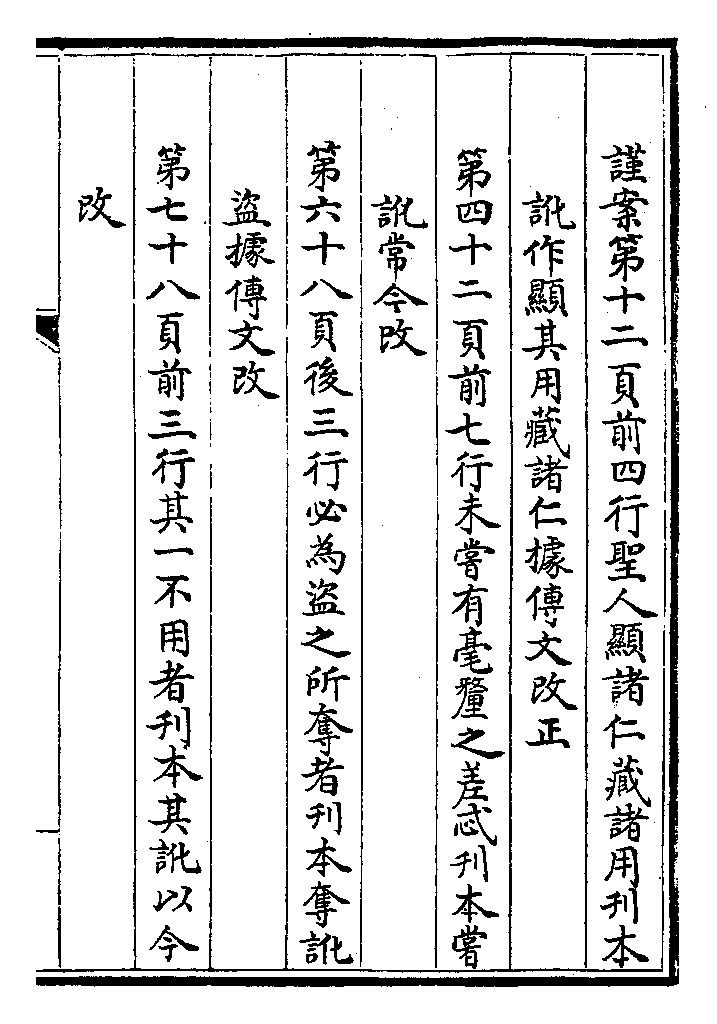 謹案第十二頁前四行聖人顯諸仁藏諸用刊本
訛作顯其用藏諸仁據傳文改正
第四十二頁前七行未嘗有毫釐之差忒刊本嘗
訛常今改
第六十八頁後三行必為盜之所奪者刊本奪訛
盜據傳文改
第七十八頁前三行其一不用者刊本其訛以今
改